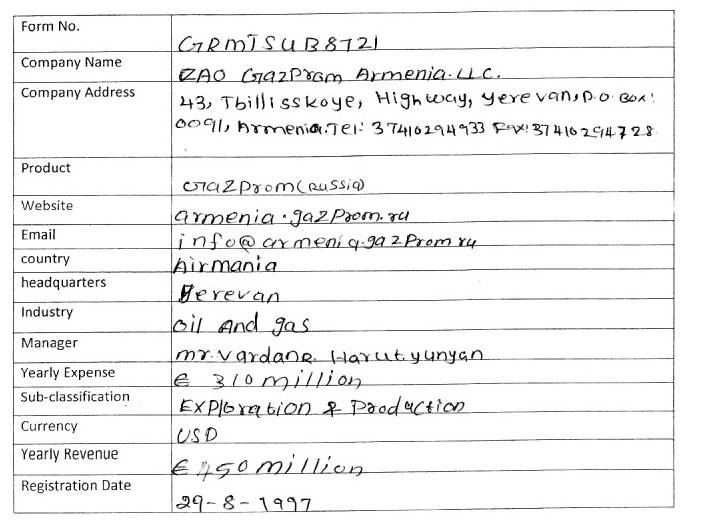 Form No. GRMTSUB8721
Company Name ZAO GazPram Armenia. LLC.
Company Address 43, Tbillisskoye, Highway, Yerevan, P.O. Box:
0091, Armenia. Tel: 37410294933 Fax: 37410294728
Product GazProm (Russia)
Website armenia.gazProm.ru
Email info@armenia.gazProm.ru
country Airmania
headquarters Yerevan
Industry Oil And gas
Manager mr. Vardane. Harutyunyan
Yearly Expense € 310 million
Sub-classification Exploration & Production
Currency USD
Yearly Revenue € 450 million
Registration Date 29-8-1997